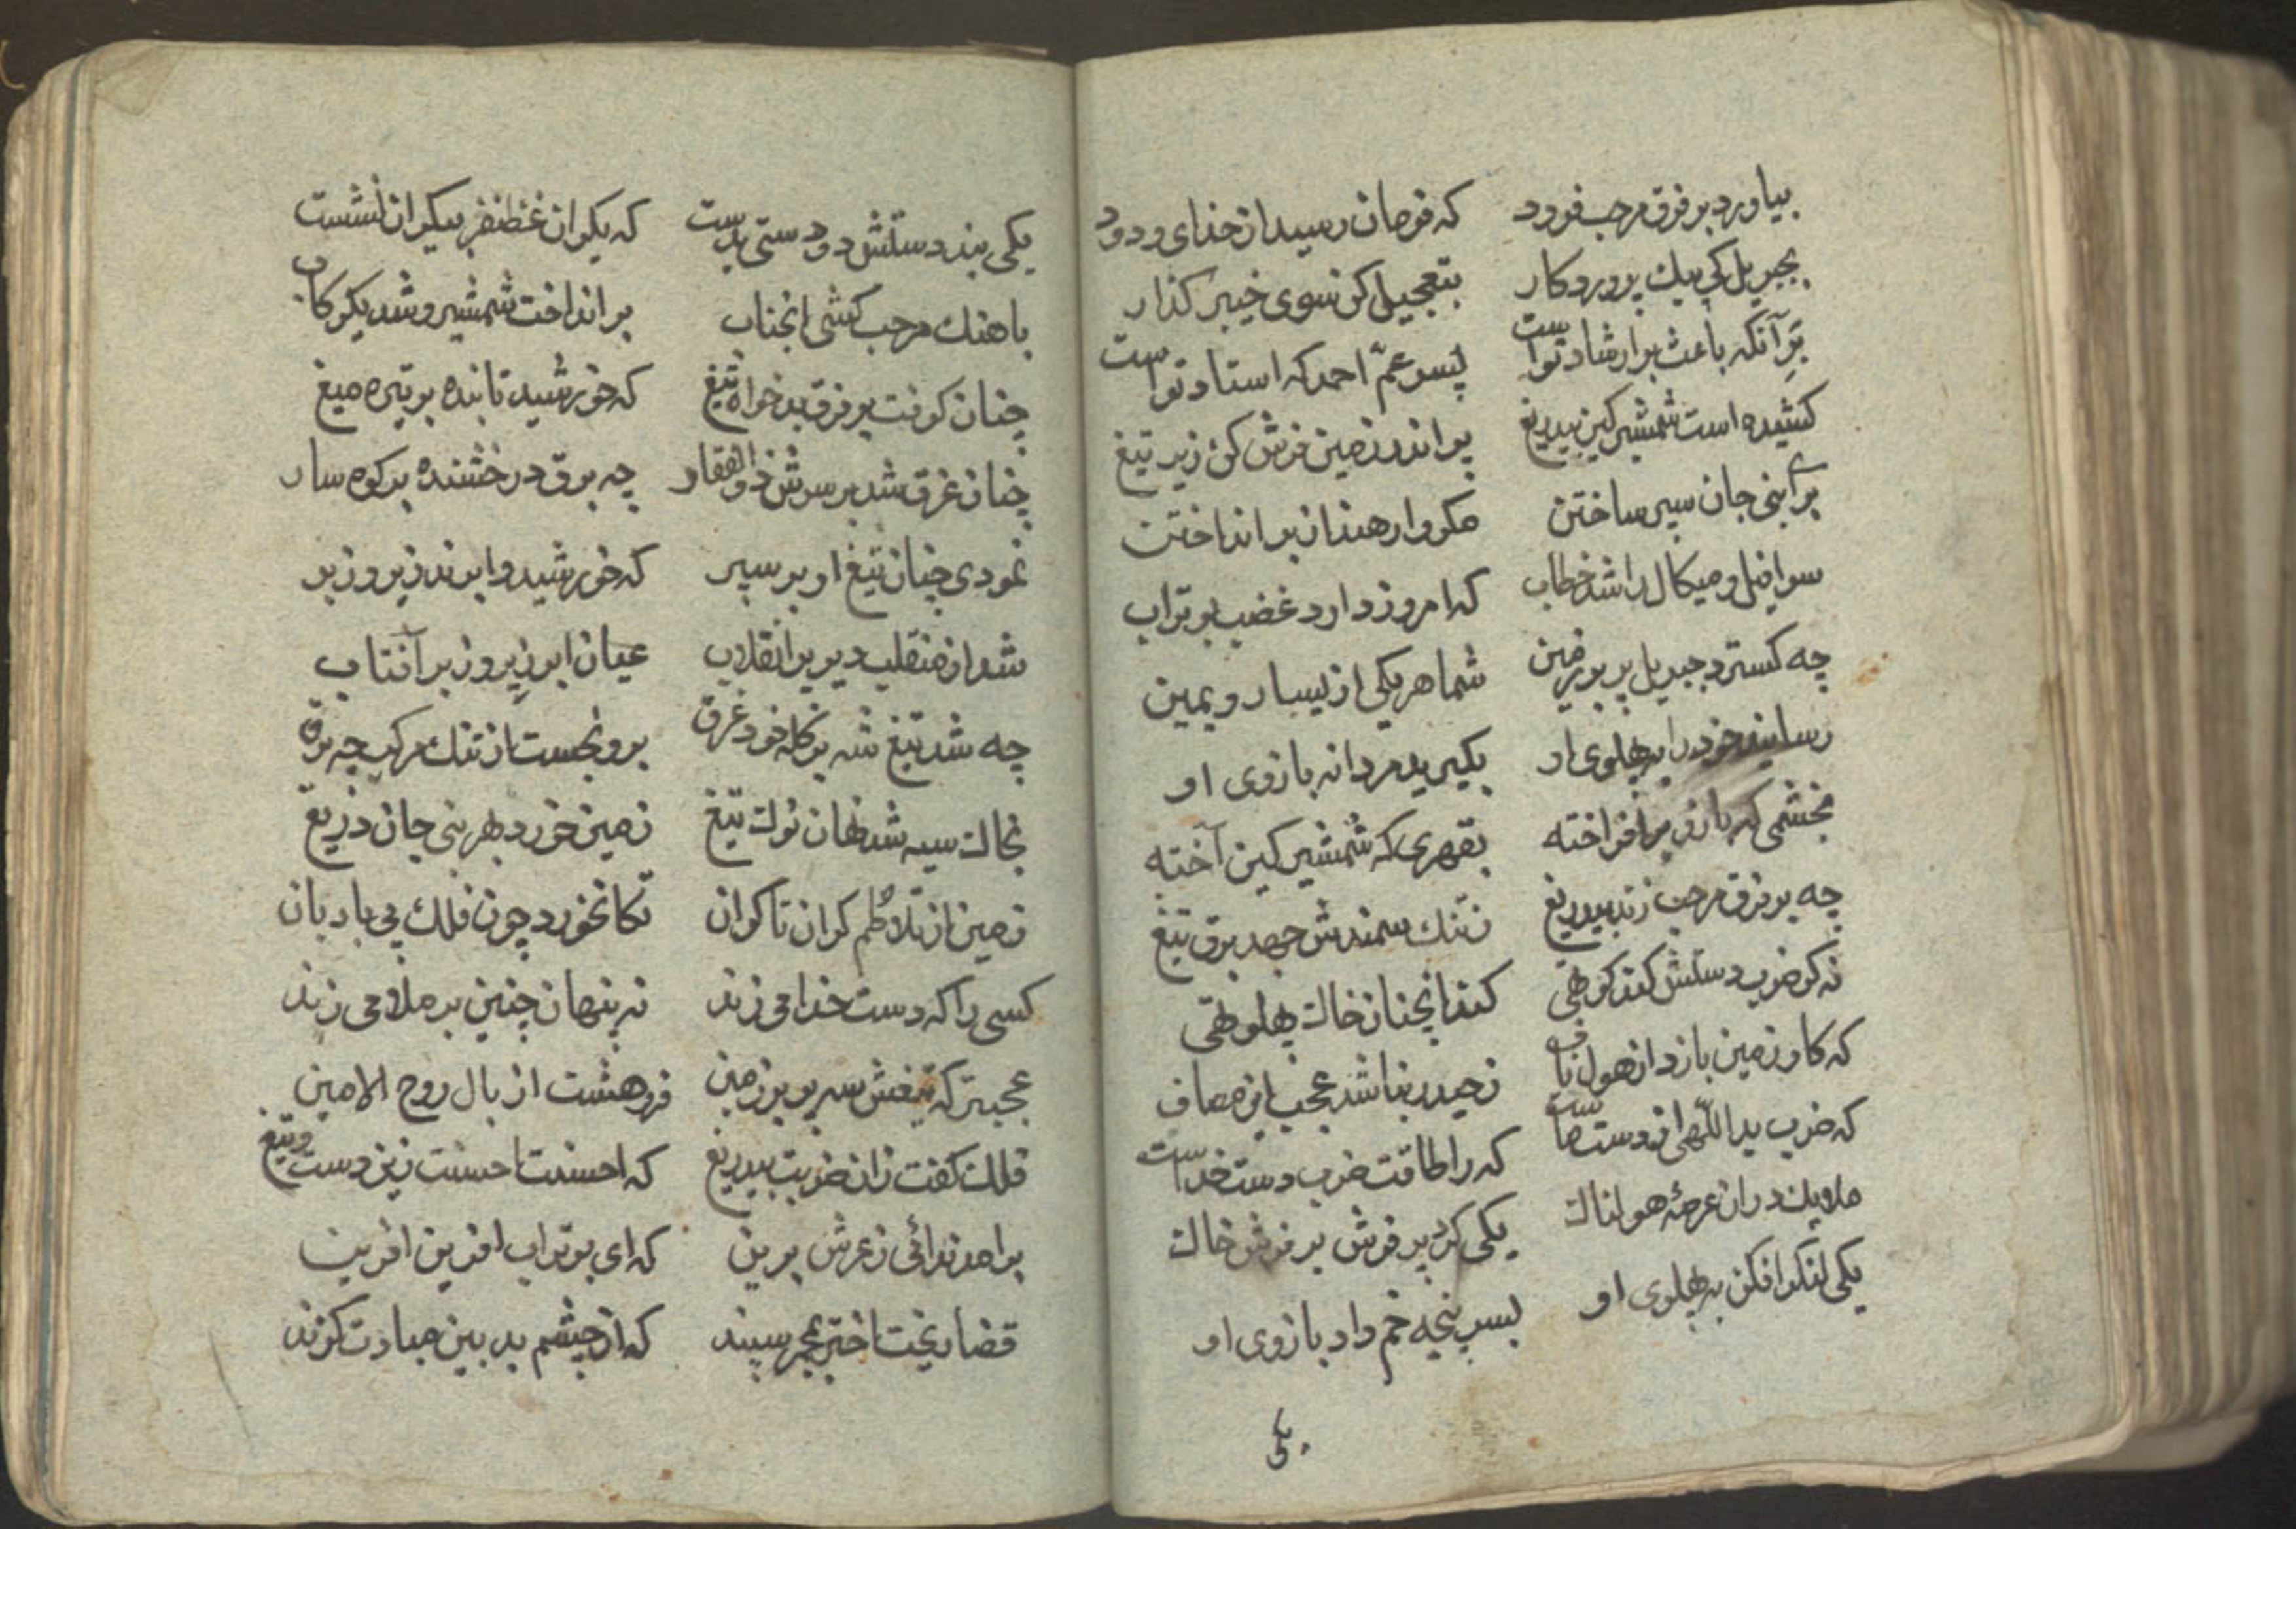 بیاورد بر فرق مرحب فرود که فرمان رسید از خدای ودود
بجبریل کی پیك پروردکار بتعجیل کن سوی خیبر کذار
بر آنکه باعث بر ارشاد تواست پسر عمّ احمد که استاد تواست
کشیده است شمشیر کین بیدریغ پر اندر زمین فرش کن زیر تیغ
برای بنی جان سپر ساختن مکروار هندان بر انداختن
سرافیل و میکال را شد خطاب که امروز دارد غضب بوتراب
چه کسترد جبریل پر بر زمین شما هر یکی از یسار و یمین
رسانید خود را بپهلوی او بکیرید مردانه بازوی او
بخشمی که بازو بر افراخته بقهری که شمشیر کین آخته
چه بر فرق مرحب زند بیدریغ ز تنك سمندش جهد برق تیغ
نه کر ضرب دستش کند کوطهی کند انچنان خاك پهلو طهی
که کاو زمین بازد از هول ناف ز حیدر بناشد عجب این مصاف
که ضرب ید اللّهی از دست ماست که را طاقت ضرب دست خداست
ملایك دران عرصهٔ هولناك یکی کرد پر فرش بر فرش خاك
یکی لنکر افکن بپهلوی او بسر پنجه خم داد بازوی او
یکی
یکی بند دستش دو دستی بدست که یکران غظنفر بیکران نشست
باهنك مرحب کشی انجناب بر انداخت شمشیر و شد یکرکاب
چنان کوفت بر فرق بدخواه تیغ که خورشید تابنده بر تیره میغ
چنان غرق شد بر سرش ذوالفقار چه برق درخشنده بر کوه سار
نمودی چنان تیغ او بر سپر که خورشید و ابرند زیر و زبر
شد از منقلب دیر پر انقلاب عیان ابر زیر و زبر آفتاب
چه شد تیغ شه بر کله خود غرق برون جست از تنك مرکب چه برق
بخاك سیه شد نهان نوك تیغ زمین خورد بهر بنی جان دریغ
زمین از تلاطم کران تا کران تکان خورد چون فلك بی بادبان
کسی را که دست خدا می زند نه پنهان چنین بر ملا می زند
عجبتر که تیغش سه پر بر زمین فرو هشت از بال روح الامین
فلك کفت زان ضربت بیدریغ که احسنت احسنت زین دست و تیغ
برامد ندائی ز عرش برین که ای بوتراب افرین افرین
قضا ریخت اختر بمجمر سپند که از چشم بد بین مبادت کزند